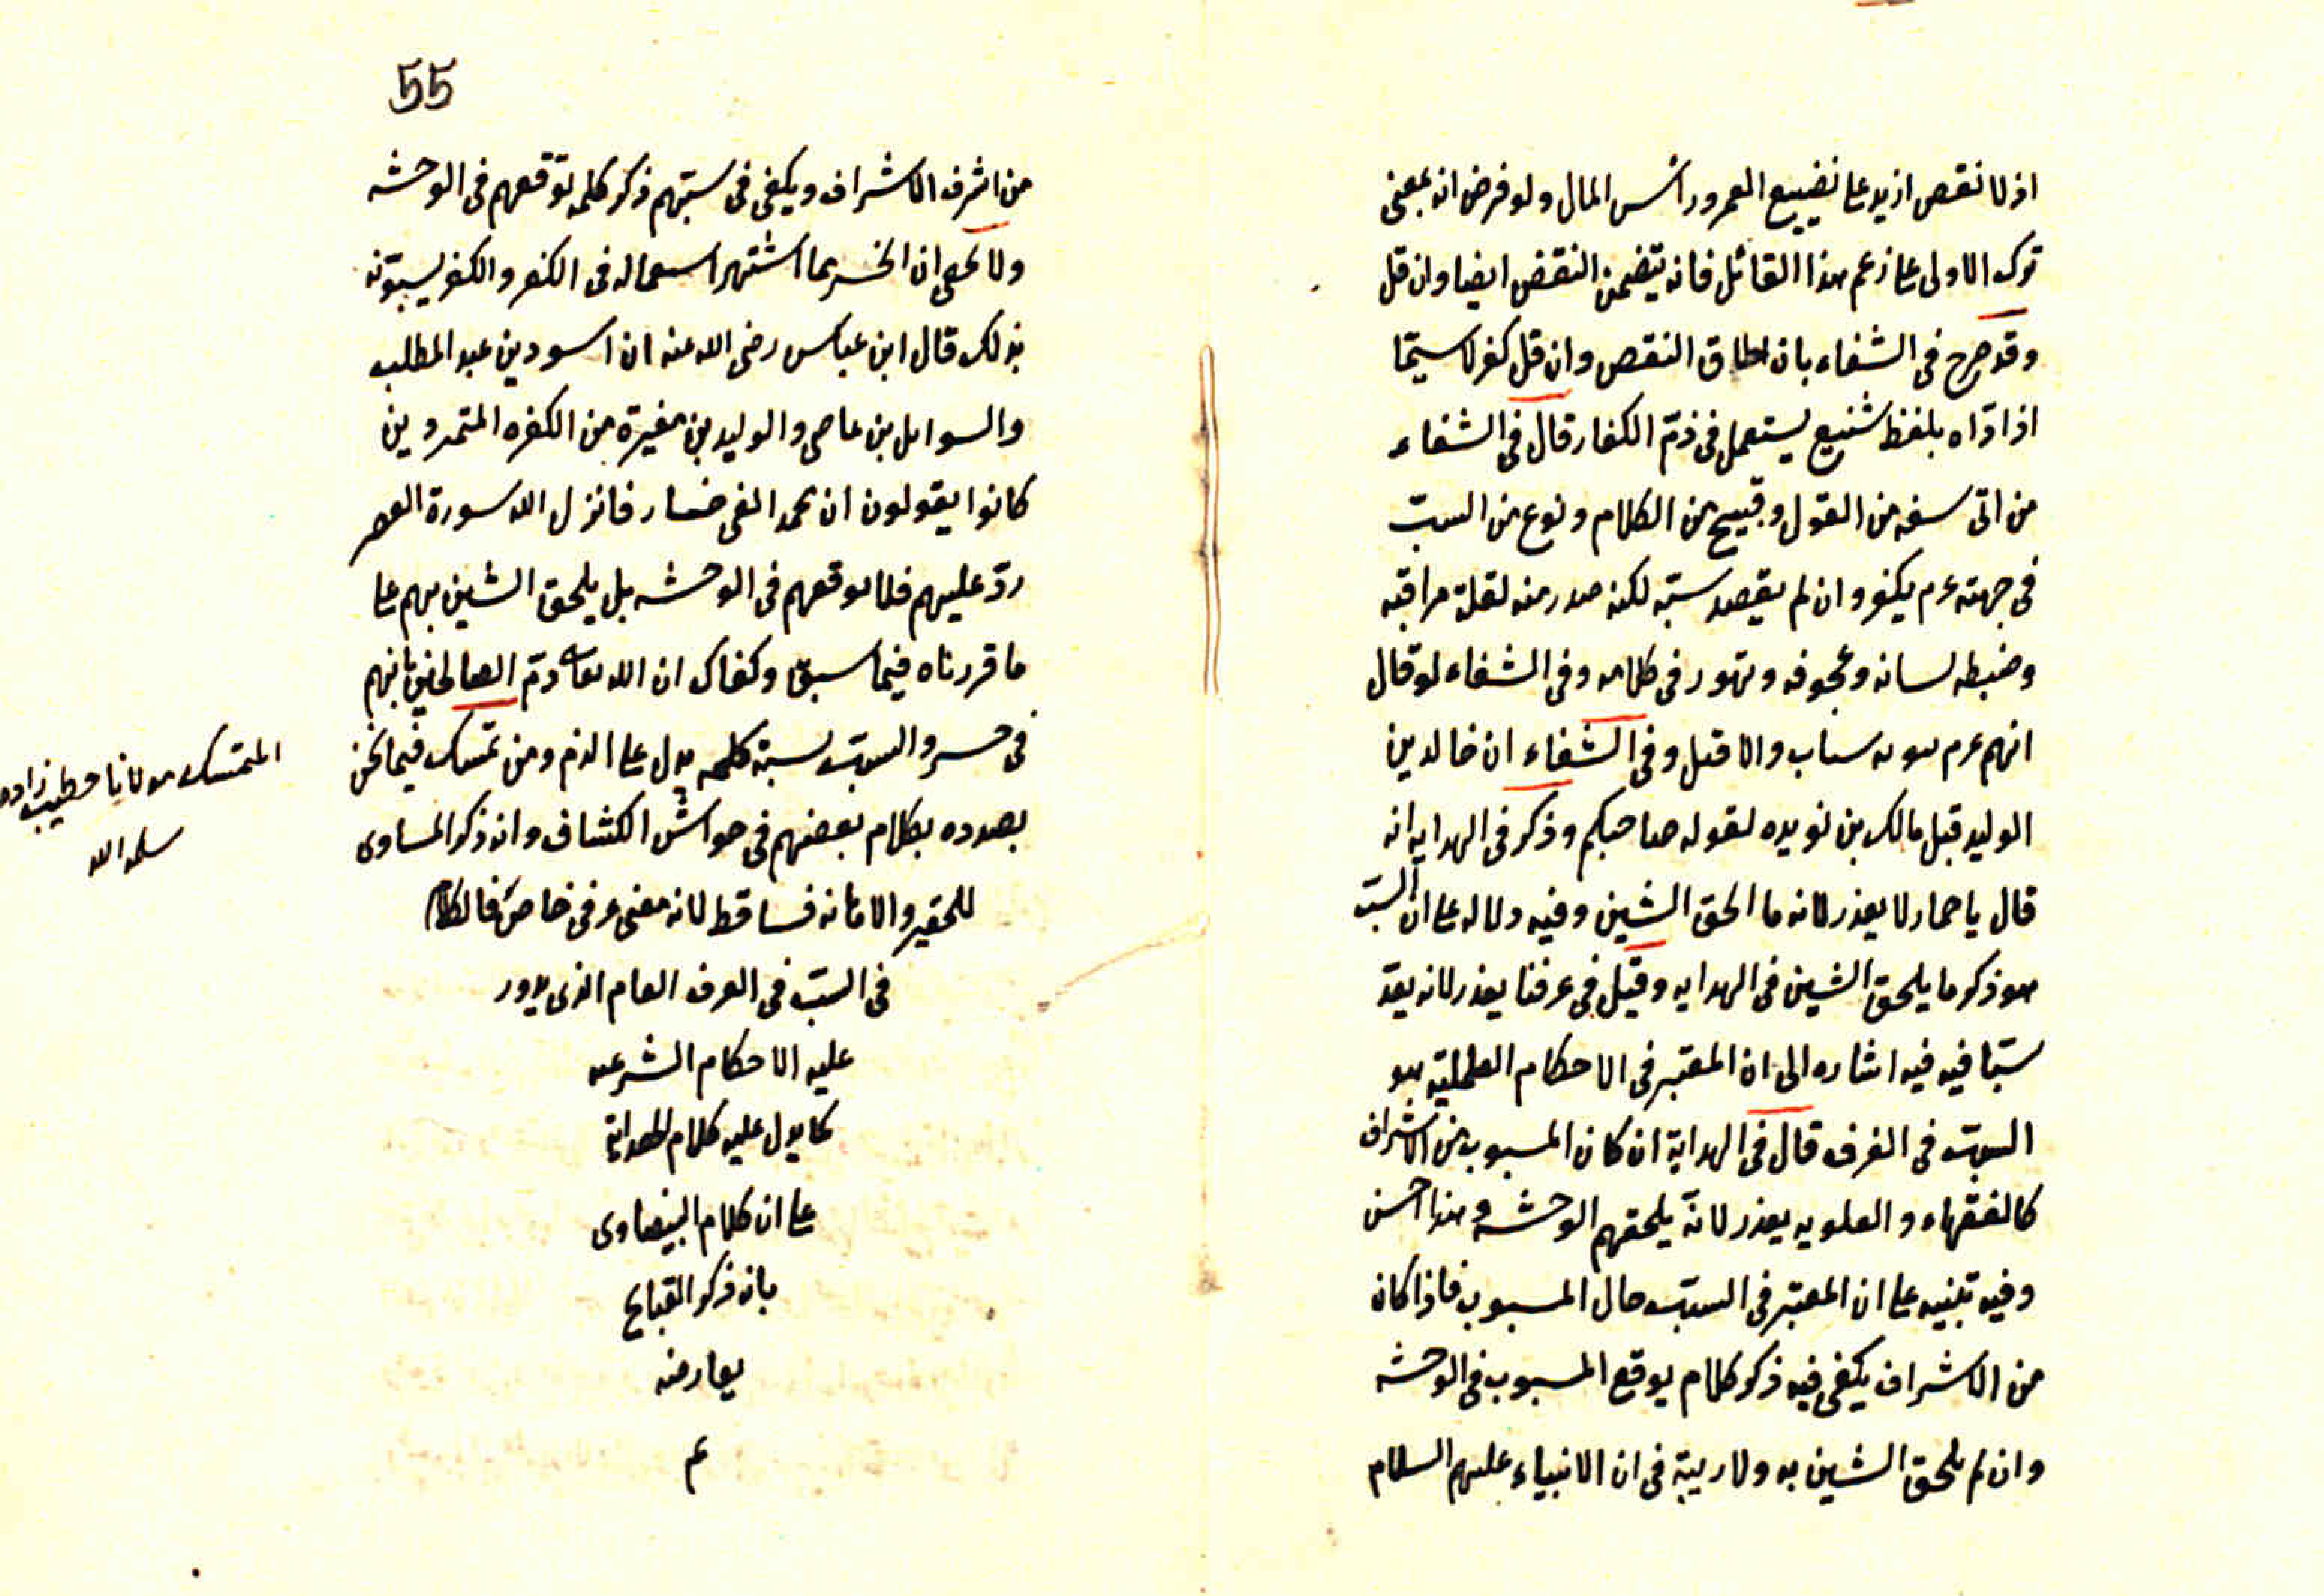 اذ لا نقص ازيد على تضييع العمر ورأس المال ولو فرض انه بمعنى
ترك الاولى على زعم هذا القائل فانه يتضمن النقض ايضا وان قل
وقد صرح فى الشفاء بان اطلاق النقص وان قل كفر لا سيّما
اذا ادّاه بلفظ شنيع يستعمل فى ذمّ الكفار قال فى الشفاء
من اتى سفه من القول وقبيح من الكلام ونوع من السبّ
فى جهته عم يكفر وان لم يقصد سبّه لكنه صدر منه لقلة مراقبه
وضبطه لسانه وعجرفه وتهور فى كلامه وفى الشفاء لو قال
انهم عم سبّاب والا قتل وفى الشفاء ان خالد بن
الوليد قتل مالك بن نويره لقوله صاحبكم وذكر فى الهدايه انه
قال يا حمار لا يعذر لانه ما الحق الشين وفيه دلاله على ان السبّ
هو ذكر ما يلحق الشين فى الهدايه وقيل فى عرفنا يعذر لانه يعدّ
سبّا فيه فيه اشاره الى ان المعتبر فى الاحكام العمليّه هو
السبّ فى العرف قال فى الهداية ان كان المسبوب من الاشراف
كالفقهاء والعلويه يعذر لانّه يلحقهم الوحشه وهذا احسن
وفيه تنبيه على ان المعتبر فى السبّ حال المسبوب فاذا كان
من الاشراف يكفى فيه ذكر كلام يوقع المسبوب فى الوحشه
وان لم يلحق الشين به ولا ريبة فى ان الانبياء عليهم السلام
55
من اشرف الاشراف ويكفى فى سبّهم ذكر كلمه توقعهم فى الوحشه
ولا يخفى ان الخسر مما اشتهر استعماله فى الكفر والكفر يسبّونه
بذلك قال ابن عباس رضى الله عنه ان اسود بن عبد المطلب
والوليد بن مغيرة من الكفره المتمردين
كانوا يقولون ان محمدا لفى خسار فانزل الله سورة العصر
ردّ عليهم فلا توقعهم فى الوحشه بل يلحق الشين بهم على
ما قررناه فيما سبق وكفاك ان الله تعالى ذمّ الصالحين بانهم
فى خسر والسبّ نسبة كلمه تدل على الذم ومن تمسك فيما نحن
بصدده بكلام بعضهم فى حواشى الكشاف وانه ذكر المساوى
للتحقير والاهانه فساقط لانه معنى عرفى خاص فالكلام
فى السبّ فى العرف العام الذى يدور
عليه الاحكام الشرعيه
كما يدل عليه كلام الهداية
على ان كلام البيضاوى
بانه ذكر القبايح
يعارضه
عم
المتمسك مولانا خطيب زاده
سلمه الله